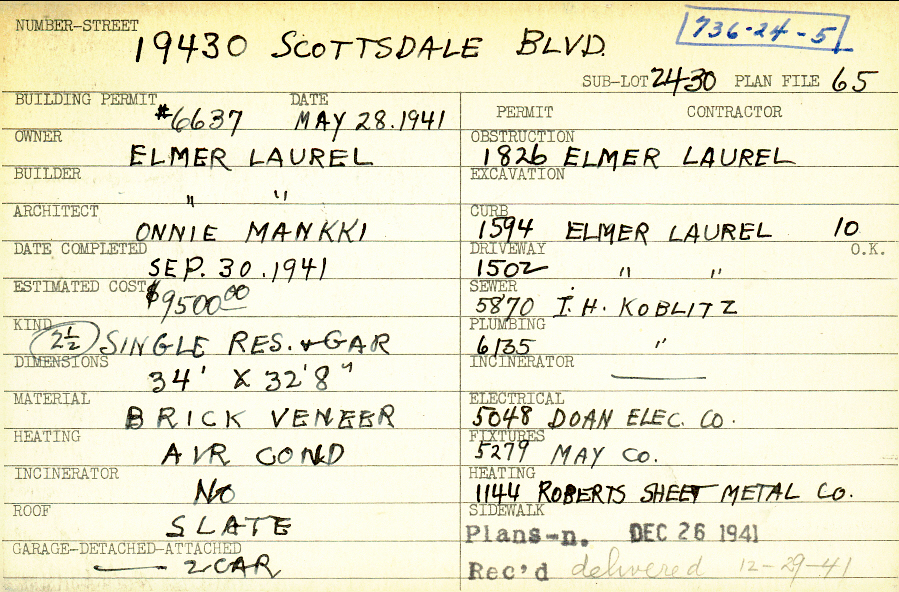 NUMBER-STREET
19430 SCOTTSDALE BLVD.
736-24-5
SUB-LOT 2430 PLAN FILE 65
BUILDING PERMIT DATE
#6637 MAY 28.1941
OWNER
ELMER LAUREL
BUILDER
" "
ARCHITECT
ONNIE MANKKI
DATE COMPLETED
SEP. 30.1941
ESTIMATED COST
$9500.00
KIND
2½ SINGLE RES. & GAR
DIMENSIONS
34' X 32'8"
MATERIAL
BRICK VENEER
HEATING
AIR COND
INCINERATOR
NO
ROOF
SLATE
GARAGE-DETACHED-ATTACHED
— 2 CAR
PERMIT CONTRACTOR
OBSTRUCTION
1826 ELMER LAUREL
EXCAVATION
CURB
1594 ELMER LAUREL 10
DRIVEWAY O.K.
1502 " "
SEWER
5870 I.H. KOBLITZ
PLUMBING
6135 "
INCINERATOR
—
ELECTRICAL
5048 DOAN ELEC. CO.
FIXTURES
5279 MAY CO.
HEATING
1144 ROBERTS SHEET METAL CO.
SIDEWALK
Plans-n. DEC 26 1941
Rec'd delivered 12-29-41